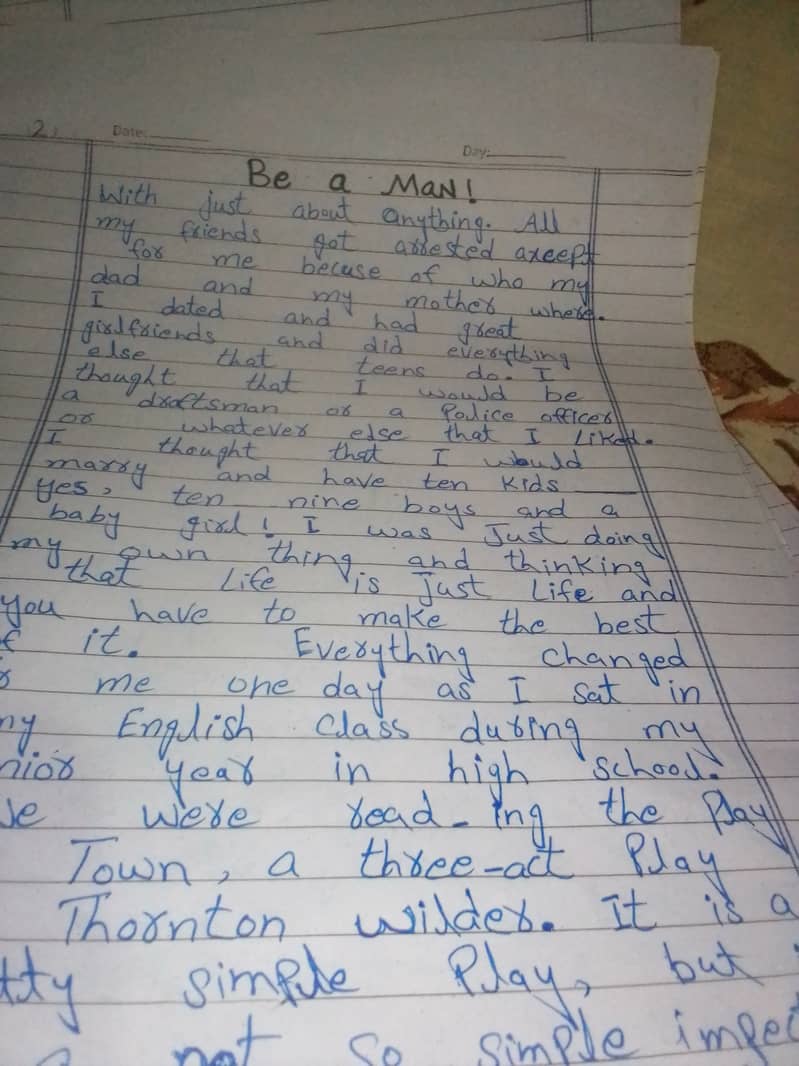 2.
Date:
Day:
Be a MaN!
With just about anything. All
my friends got arrested axcept
for me becuse of who my
dad and my mother where.
I dated and had great
girlfriends and did everything
else that teens do. I
thought that I would be
a draftsman or a Police officer
or whatever else that I liked.
I thought that I would
marry and have ten kids
yes, ten nine boys and a
baby girl! I was Just doing
my own thing and thinking
that Life is just Life and
you have to make the best
it. Everything changed
me one day as I sat in
English Class during my
year in high school.
were read-ing the Play
Town, a three-act Play
Thornton wilder. It is a
simple Play, but
not so simple